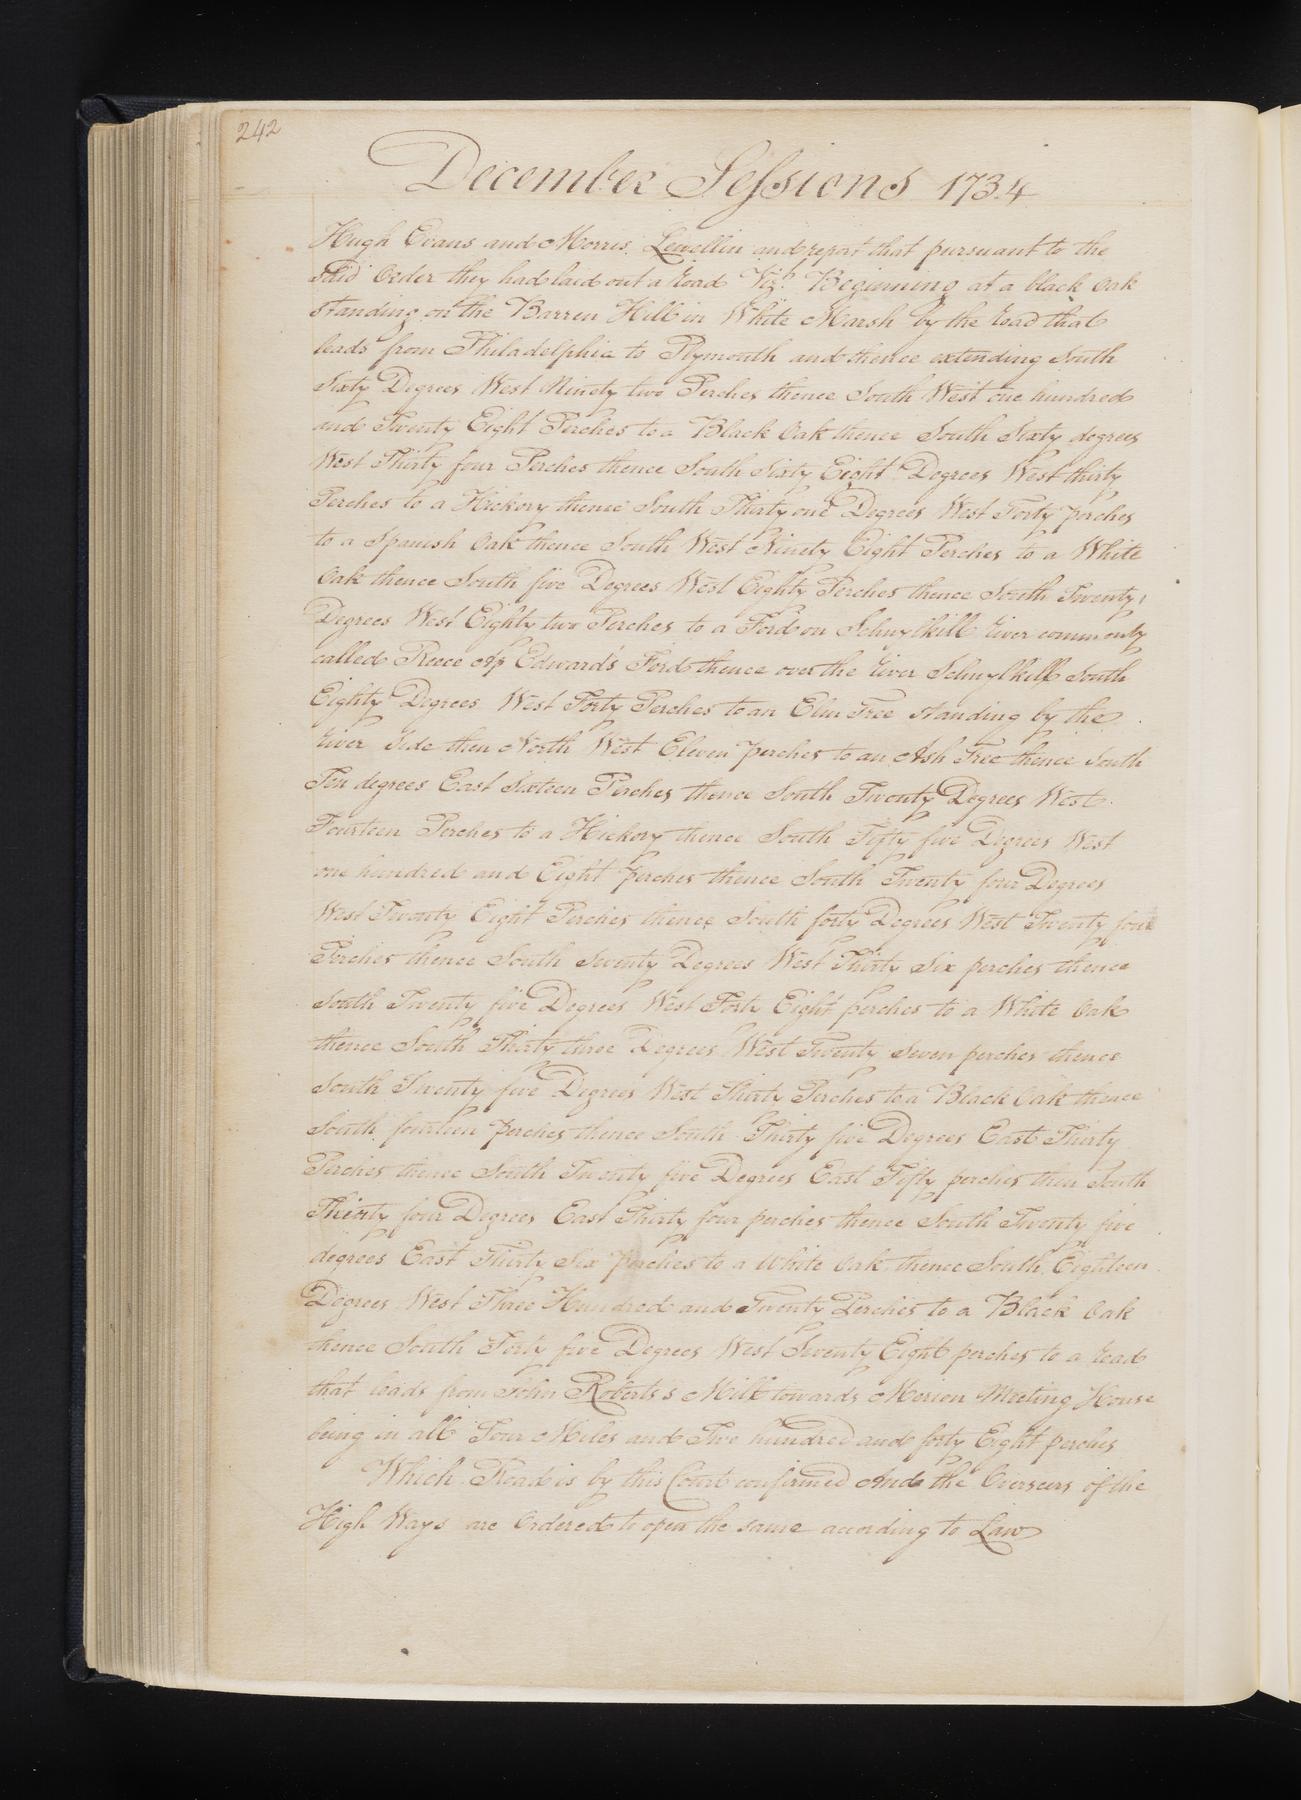 242
December Sessions 1734
Hugh Evans and Morris Lewellin and report that pursuant to the
said Order they had laid out a Road Vizt. Beginning at a black Oak
standing on the Barren Hill in White Marsh by the Road that
leads from Philadelphia to Plymouth and thence extending South
Sixty Degrees West Ninety two Perches thence South West one hundred
and Twenty Eight Perches to a Black Oak thence South Sixty degrees
West Thirty four Perches thence South Sixty Eight Degrees West thirty
Perches to a Hickory thence South Thirty one Degrees West Forty perches
to a Spanish Oak thence South West Ninety Eight Perches to a White
Oak thence South five Degrees West Eighty Perches thence South Twenty
Degrees West Eighty two Perches to a Ford on Schuylkill River commonly
called Reece Ap Edward's Ford thence over the River Schuylkill South
Eighty Degrees West Forty Perches to an Elm Tree standing by the
River Side then North West Eleven perches to an Ash Tree thence South
Ten degrees East Sixteen Perches thence South Twenty Degrees West
Fourteen Perches to a Hickory thence South Fifty five Degrees West
one hundred and Eight perches thence South Twenty four Degrees
West Twenty Eight Perches thence South forty Degrees West Twenty four
Perches thence South Seventy Degrees West Thirty Six perches thence
South Twenty five Degrees West Forty Eight perches to a White Oak
thence South Thirty three Degrees West Twenty Seven perches thence
South Twenty five Degrees West Thirty Perches to a Black Oak thence
South fourteen perches thence South Thirty five Degrees East Thirty
Perches thence South Twenty five Degrees East Fifty perches then South
Thirty four Degrees East Thirty four perches thence South Twenty five
degrees East Thirty Six perches to a White Oak thence South Eighteen
Degrees West Three Hundred and Twenty Perches to a Black Oak
thence South Forty five Degrees West Seventy Eight perches to a road
that leads from John Roberts's Mill towards Merion Meeting House
being in all Four Miles and Two hundred and forty Eight perches
Which Road is by this Court confirmed And the Overseers of the
High Ways are Ordered to open the same according to Law